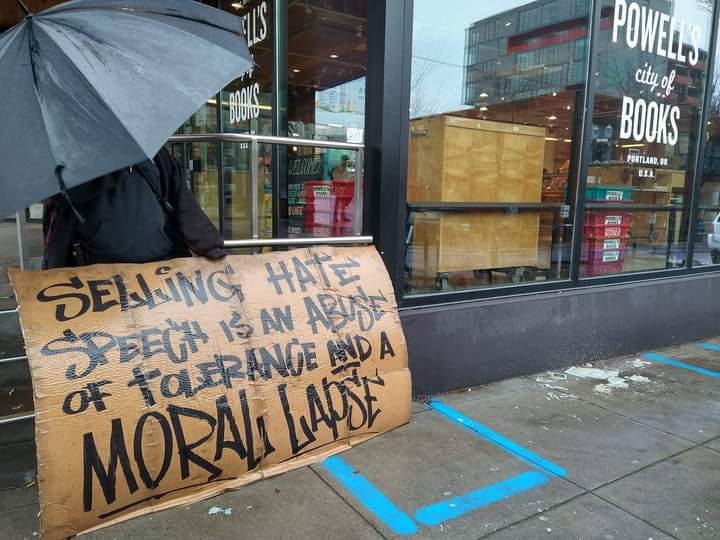 POWELL'S
city of
BOOKS
PORTLAND, OR
U.S.A.
ELL'S
BOOKS
WELCOME
SELLING HATE
SPEECH IS AN ABUSE
OF TOLERANCE AND A
MORAL LAPSE